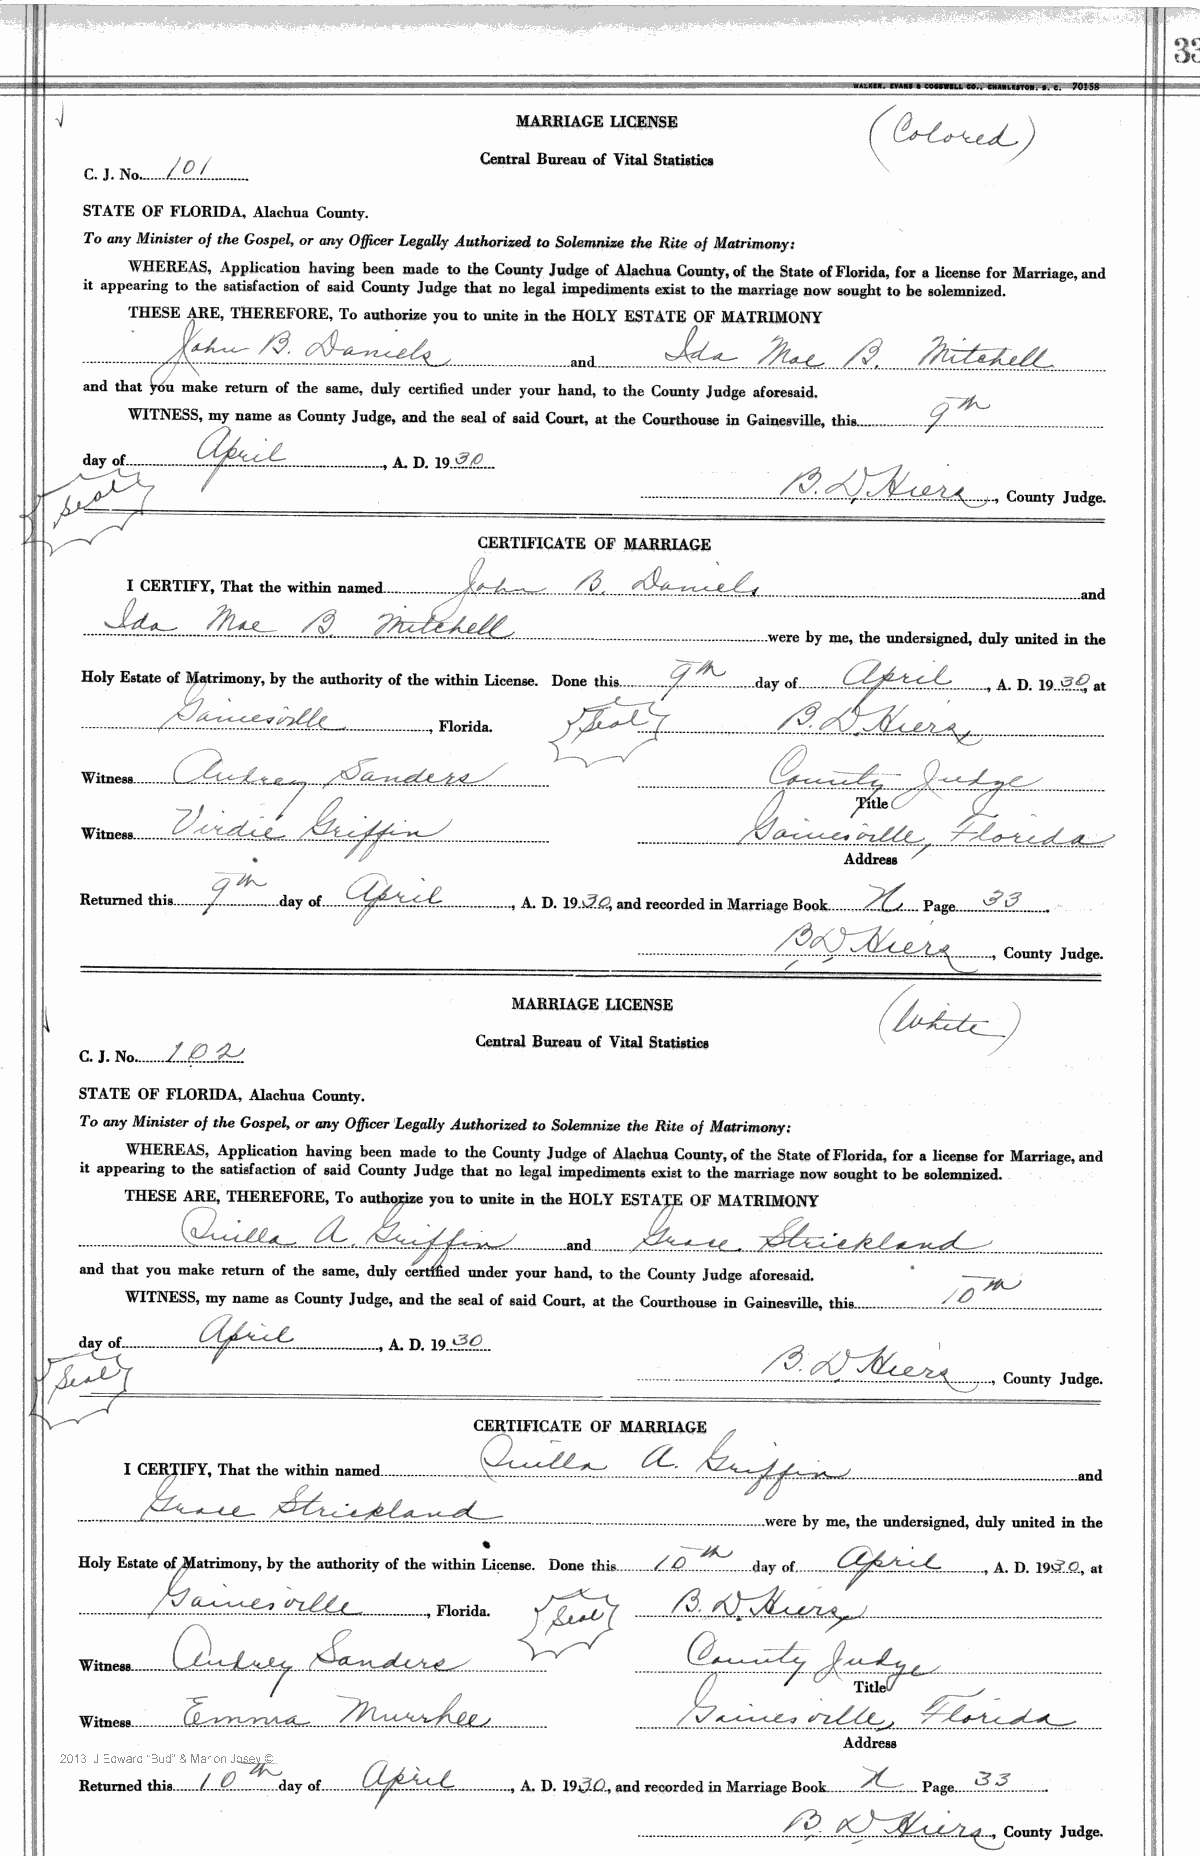 33
WALKER, EVANS & COGSWELL CO., CHARLESTON, S. C. 70158
MARRIAGE LICENSE
(Colored)
Central Bureau of Vital Statistics
C. J. No. 101
STATE OF FLORIDA, Alachua County.
To any Minister of the Gospel, or any Officer Legally Authorized to Solemnize the Rite of Matrimony:
WHEREAS, Application having been made to the County Judge of Alachua County, of the State of Florida, for a license for Marriage, and
it appearing to the satisfaction of said County Judge that no legal impediments exist to the marriage now sought to be solemnized.
THESE ARE, THEREFORE, To authorize you to unite in the HOLY ESTATE OF MATRIMONY
John B. Daniels and Ida Mae B. Mitchell
and that you make return of the same, duly certified under your hand, to the County Judge aforesaid.
WITNESS, my name as County Judge, and the seal of said Court, at the Courthouse in Gainesville, this 9th
day of April, A. D. 1930
Seal
B. D. Hiers, County Judge.
CERTIFICATE OF MARRIAGE
I CERTIFY, That the within named John B. Daniels and
Ida Mae B. Mitchell were by me, the undersigned, duly united in the
Holy Estate of Matrimony, by the authority of the within License. Done this 9th day of April, A. D. 1930, at
Gainesville, Florida. Seal B. D. Hiers
Witness Audrey Sanders County Judge
Title
Witness Virdie Griffin Gainesville, Florida
Address
Returned this 9th day of April, A. D. 1930, and recorded in Marriage Book N Page 33
B. D. Hiers, County Judge.
MARRIAGE LICENSE
(White)
Central Bureau of Vital Statistics
C. J. No. 102
STATE OF FLORIDA, Alachua County.
To any Minister of the Gospel, or any Officer Legally Authorized to Solemnize the Rite of Matrimony:
WHEREAS, Application having been made to the County Judge of Alachua County, of the State of Florida, for a license for Marriage, and
it appearing to the satisfaction of said County Judge that no legal impediments exist to the marriage now sought to be solemnized.
THESE ARE, THEREFORE, To authorize you to unite in the HOLY ESTATE OF MATRIMONY
Quilla A. Griffin and Grace Strickland
and that you make return of the same, duly certified under your hand, to the County Judge aforesaid.
WITNESS, my name as County Judge, and the seal of said Court, at the Courthouse in Gainesville, this 10th
day of April, A. D. 1930
Seal
B. D. Hiers, County Judge.
CERTIFICATE OF MARRIAGE
I CERTIFY, That the within named Quilla A. Griffin and
Grace Strickland were by me, the undersigned, duly united in the
Holy Estate of Matrimony, by the authority of the within License. Done this 10th day of April, A. D. 1930, at
Gainesville, Florida. Seal B. D. Hiers
Witness Audrey Sanders County Judge
Title
Witness Emma Murrhee Gainesville, Florida
Address
2013 J Edward "Bud" & Marion Josey ©
Returned this 10th day of April, A. D. 1930, and recorded in Marriage Book N Page 33
B. D. Hiers, County Judge.